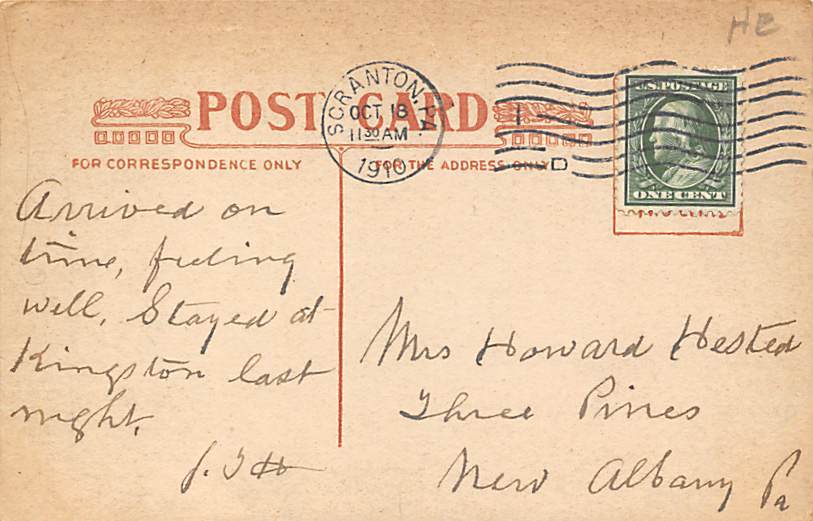 HE
POST CARD
SCRANTON, PA
OCT 18
11 30 AM
1910
D
U.S. POSTAGE
ONE CENT
FOR CORRESPONDENCE ONLY
FOR THE ADDRESS ONLY
Arrived on
time, feeling
well. Stayed at
Kingston last
night.
Mrs Howard Hested
Three Pines
New Albany Pa